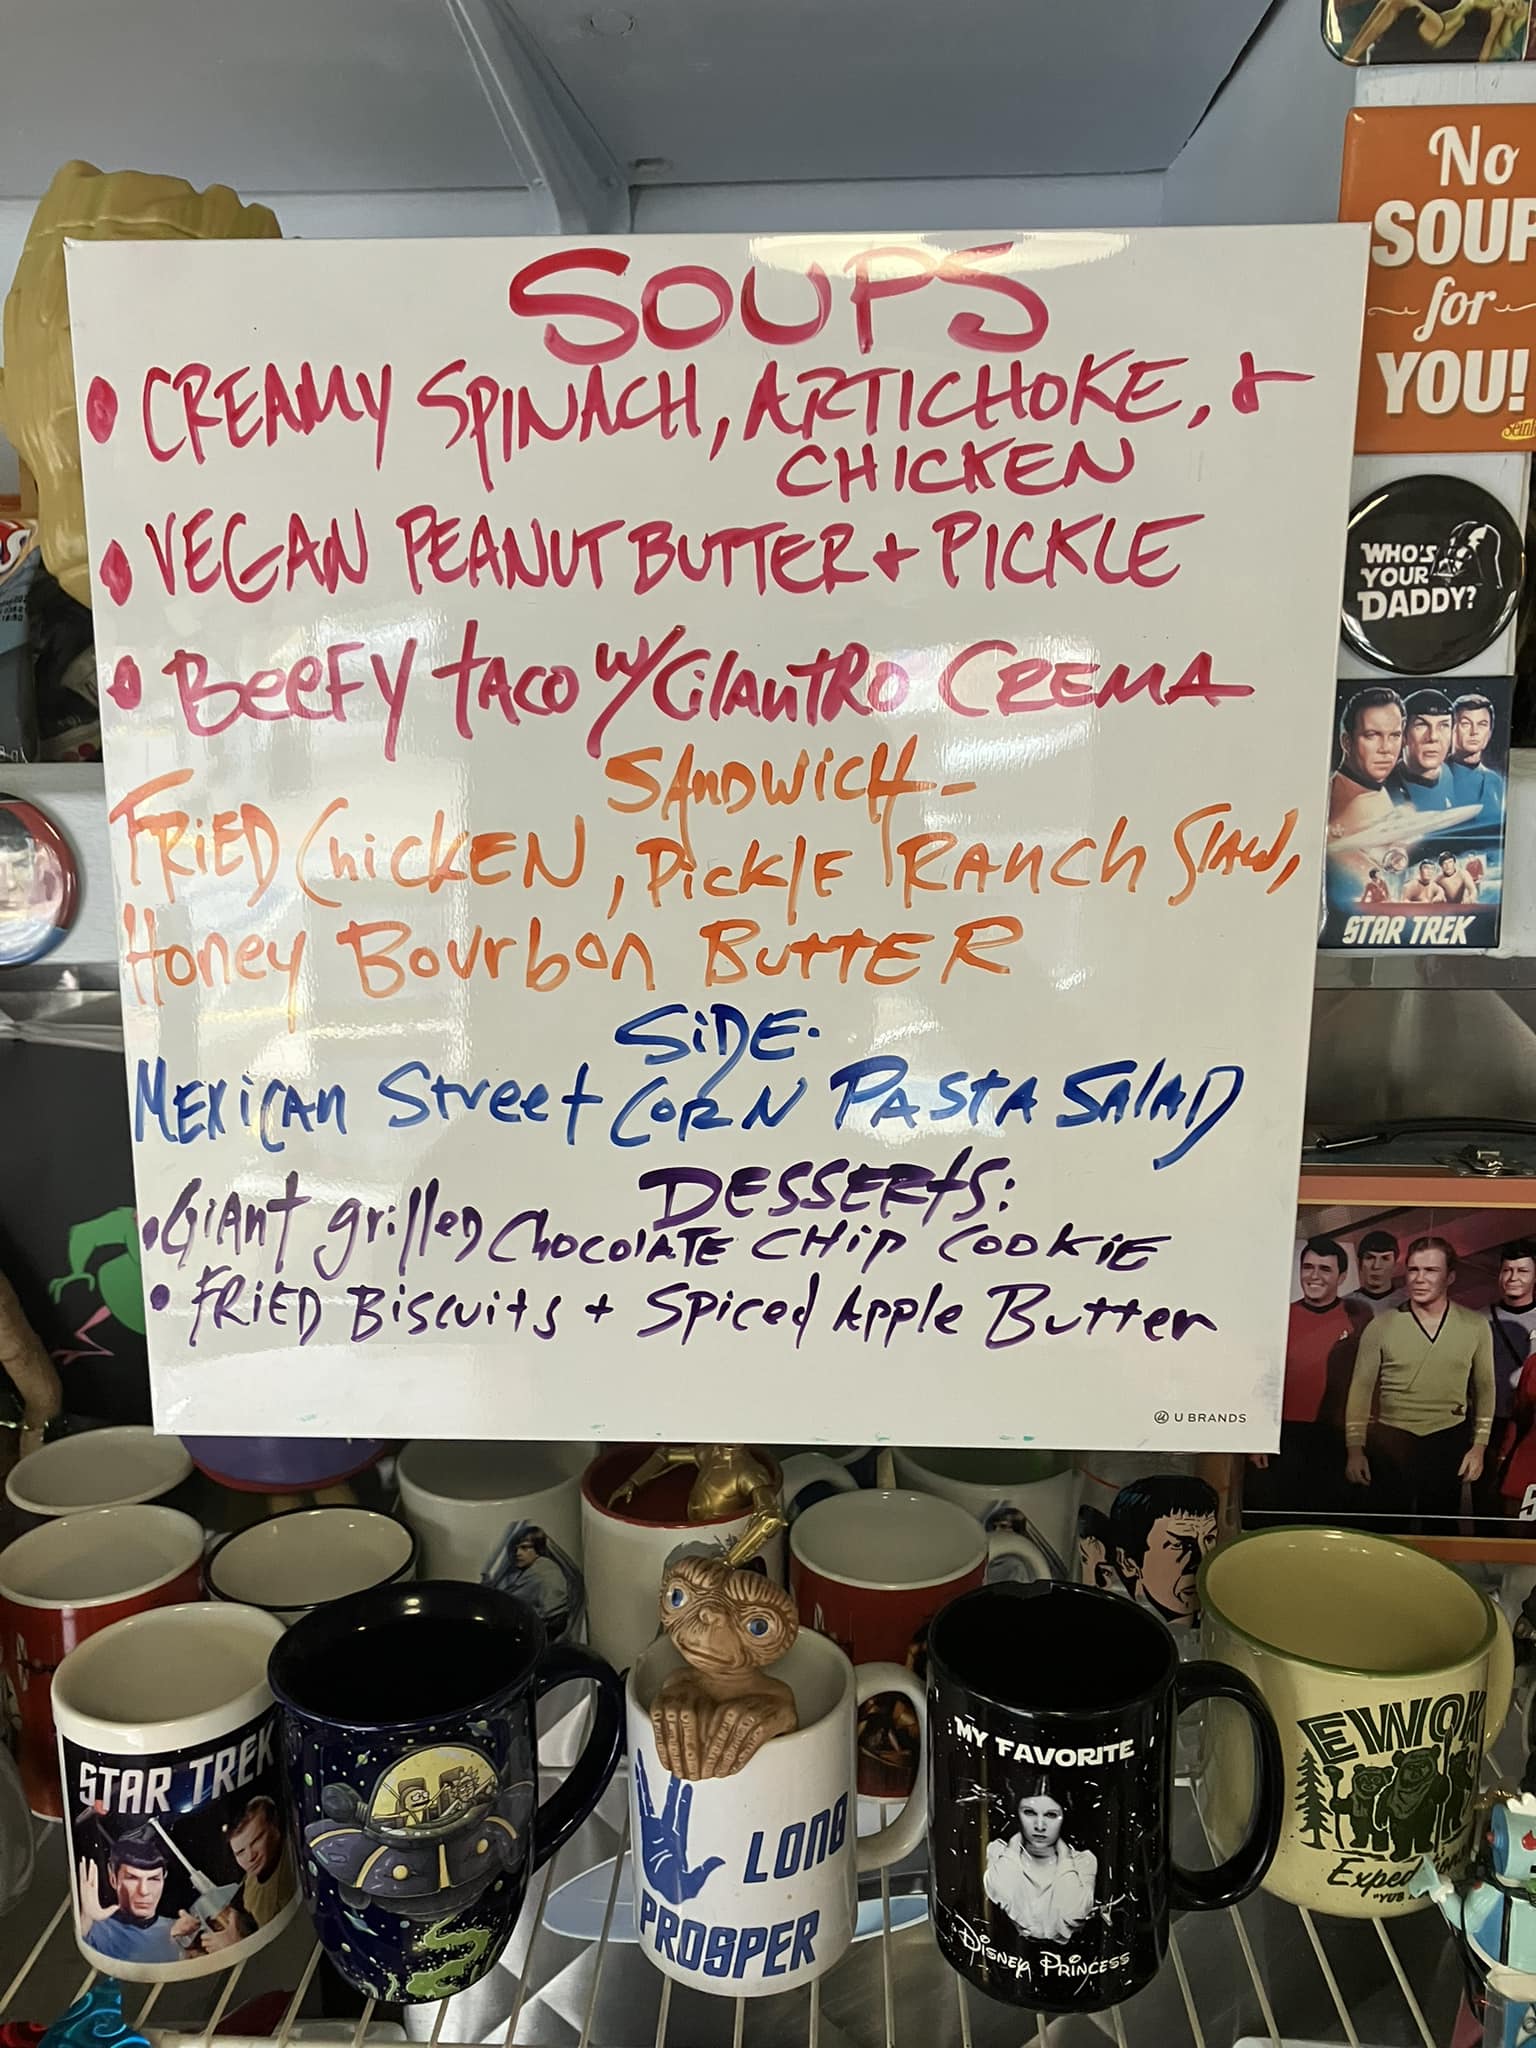 SOUPS
• CREAMY SPINACH, ARTICHOKE, &
CHICKEN
• VEGAN PEANUT BUTTER + PICKLE
• BEEFY TACO W/ CILANTRO CREMA
SANDWICH-
FRIED CHICKEN, PICKLE RANCH SLAW,
HONEY BOURBON BUTTER
SIDE.
MEXICAN STREET CORN PASTA SALAD
DESSERTS:
• GIANT grilled CHOCOLATE CHIP COOKIE
• FRIED BISCUITS + Spiced Apple Butter
U BRANDS
No
SOUP
for
YOU!
WHO'S
YOUR
DADDY?
STAR TREK
STAR TREK
LONG
PROSPER
MY FAVORITE
DISNEY PRINCESS
EWOK
"YUB